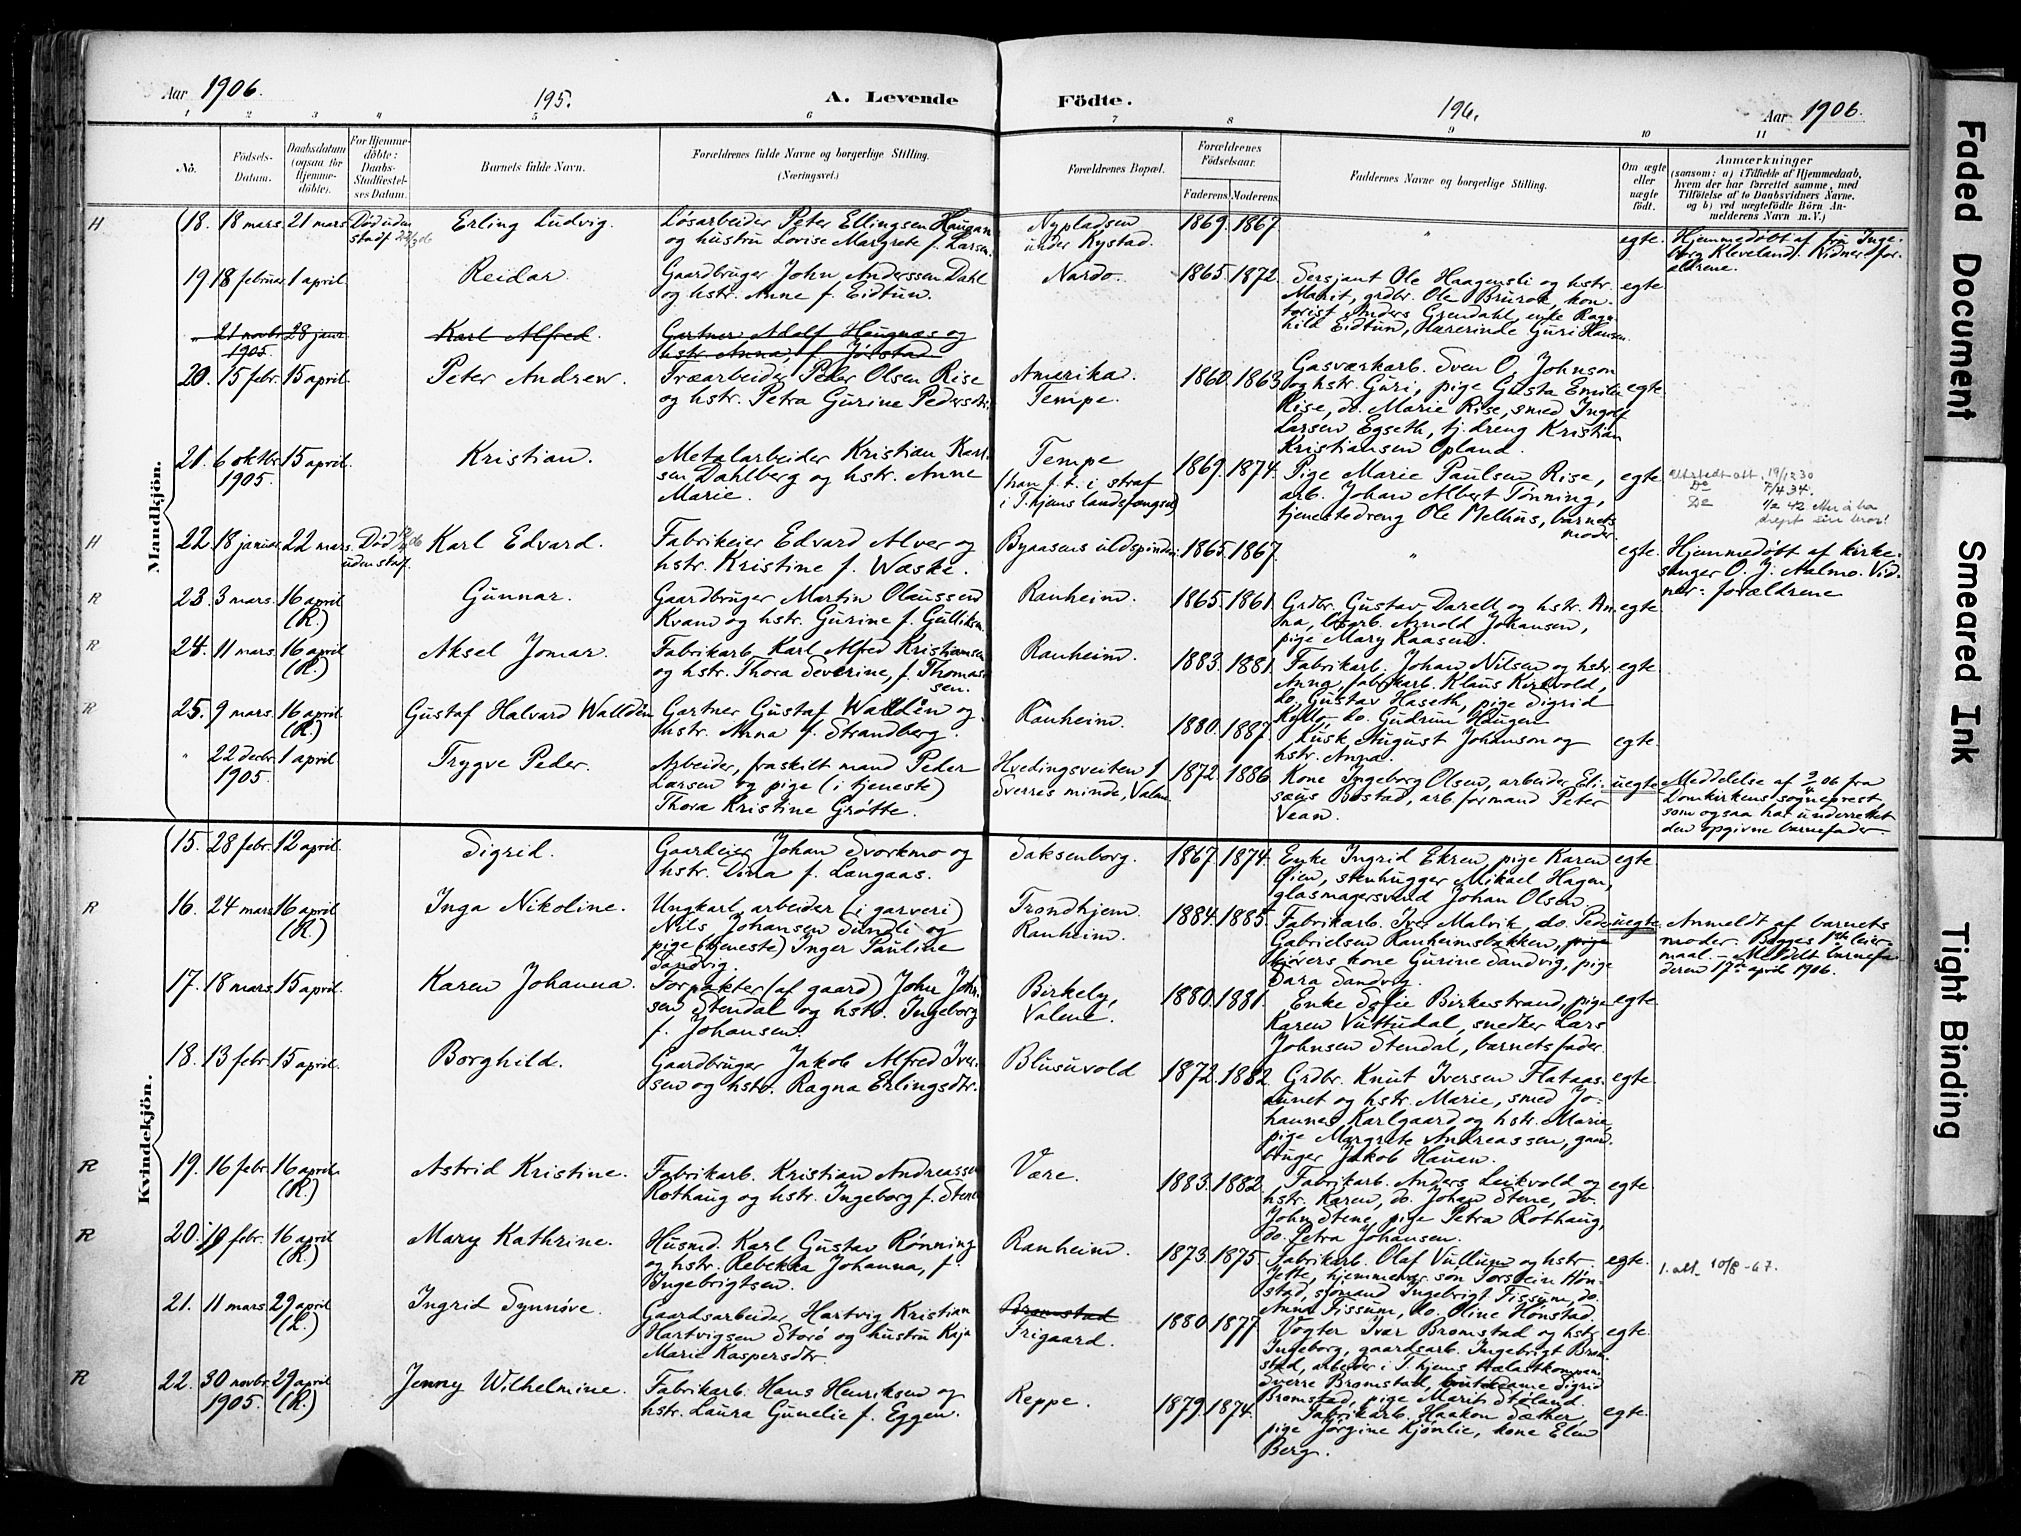 Aar 1906.
195.
A. Levende
Födte.
196.
Aar 1906.
1 2 3 4 5 6 7 8 9 10 11
No.
Födsels-Datum.
Daabsdatum (ogsaa for Hjemmedöbte).
For Hjemmedöbte: Daabs-Stadfæstelses Datum.
Barnets fulde Navn.
Forældrenes fulde Navne og borgerlige Stilling. (Næringsvei.)
Forældrenes Bopæl.
Forældrenes Födselsaar.
Faderens. Moderens.
Faddernes Navne og borgerlige Stilling.
Om ægte eller uægte født.
Anmærkninger
(saasom: a) i Tilfælde af Hjemmedaab, hvem der har forrettet samme, med Tilføielse af to Daabsvidners Navne. og b) ved uægtefødte Börn Anmelderens Navn m. V.)
Mandkjön.
H 18. 18 mars. 21 mars. Død uden stadf. Erling Ludvig.
Løsarbeider Peter Ellingsen Haugan
og hustru Lovise Margrete f. Larsen.
Nypladsen
under Kystad.
1869. 1867. " egte.
Hjemmedøbt af frü Inge-
borg Kleveland. Vidner: for-
ældrene.
19 18 februar 1 april. Reidar.
Gaardbruger John Anderssen Dahl
og hstr. Anne f. Eidtun.
Nardo.
1865. 1872.
Sersjant Ole Haagensli og hstr.
Marit, grdbr. Ole Brurok, kon-
torist Anders Grendahl, enke Ragn-
hild Eidtun, Lærerinde Guri Hansen.
egte
" 21 novbr. 1905. 28 janr. Karl Alfred.
Gartner Adolf Haugnæs og
hstr. Anna, f. Jørstad
20. 15 febr. 15 april. Peter Andrew.
Træarbeider Peder Olsen Rise
og hstr. Petra Gurine Pedersdtr.
Amerika.
Tempe.
1860. 1863.
Gasværkarb. Sven O. Johnson
og hstr. Guri, pige Gusta Emilie
Rise, do. Marie Rise, smed Ingolf
Larsen Egseth, tj.dreng Kristian
Kristiansen Opland.
egte
21. 6 oktbr. 1905. 15 april. Kristian.
Metalarbeider Kristian Karl-
sen Dahlberg og hstr. Anne
Marie.
Tempe
(han f. t. i straf
i T.hjems landsfængsel)
1869. 1874.
Pige Marie Paulsen Rise,
arb. Johan Albert Tønning,
tjenestedreng Ole Melhus, barnets
moder.
egte.
19/12 30
De 7/4 34.
De 1/2 42 etter å ha
drept sin bror!
H 22. 18 januar. 22 mars. Død uden stadf. Karl Edvard.
Fabrikeier Edvard Alver og
hstr. Kristine f. Wæske.
Byaasens uldspinderi
1865. 1867. " egte.
Hjemmedøbt af kirke-
sanger O. J. Aalmo. Vid-
ner: forældrene
R 23. 3 mars. 16 april (R.) Gunnar.
Gaardbruger Martin Olaussen
Kvam og hstr. Gurine f. Gulliksen.
Ranheim.
1865. 1861.
Grdbr. Gustav Darell og hstr. An-
na, løsarb. Arnold Johansen,
pige Mary Kaasen.
egte.
R 24. 11 mars. 16 april (R.) Aksel Jomar.
Fabrikarb. Karl Alfred Kristiansen
og hstr. Thora Severine, f. Thomas-
sen.
Ranheim.
1883. 1881.
Fabrikarb. Johan Nilsen og hstr.
Anna, fabrikarb. Klaus Kirkvold,
do. Gustav Haseth, pige Sigrid
Kollo, do. Gudrun Haugen
egte
R 25. 9 mars. 16 april (R.) Gustaf Halvard Walldén
Gartner Gustaf Walldén og
hstr. Anna f. Strandberg.
Ranheim.
1880. 1887.
Kusk August Johanson og
hstr. Anna.
egte.
" 22 decbr. 1905. 1 april. Trygve Peder.
Arbeider, fraskilt mand Peder
Larsen og pige (i tjeneste)
Thora Kristine Grøtte.
Hvedingsveiten 1
Sverres minde, Valene.
1872. 1886.
Kone Ingeborg Olsen, arbeider Eli-
sæus Bostad, arb.formand Peter
Vean.
uegte
Meddelelse af 2/4 06 fra
Domkirkens sogneprest,
som ogsaa har underrettet
den opgivne barnefader
Kvindekjön.
15. 28 febr. 12 april. Sigrid.
Gaardeier Johan Svorkmo og
hstr. Dina f. Langaas.
Saksenborg.
1867. 1874.
Enke Ingrid Ekren, pige Karen
Øien, stenhugger Mikael Hagen,
glasmagersvend Johan Olsen.
egte
R 16. 24 mars 16 april (R.) Inga Nikoline.
Ungkarl, arbeider (i garveri)
Nils Johansen Sundli og
pige (tjeneste) Inger Pauline
Sandvig.
Trondhjem.
Ranheim.
1884. 1885.
Fabrikarb. Iver Malvik, do. Peder
Gabrielsen Ranheimsbakken, pige
Sivers kone Gurine Sandvig, pige
Sara Sandvig.
uegte.
Anmeldt af barnets
moder. Begges 1ste leier-
maal. – Meldt barnefa-
deren 17de april 1906.
17. 18 mars. 15 april. Karen Johanna.
Forpakter (af gaard) John John-
sen Stendal og hstr. Ingeborg
f. Johansen.
Birkely,
Valene.
1880. 1881.
Enke Sofie Birkestrand, pige
Karen Vuttudal, snedker Lars
Johnsen Stendal, barnets fader.
egte
18. 13 febr. 15 april. Borghild.
Gaardbruger Jakob Alfred Iver-
sen og hstr. Ragna Erlingsdtr.
Blusuvold
1872. 1882.
Grdbr. Knut Iversen Flataas-
aunet og hstr. Marie, smed Jo-
hannes Karlgaard og hstr. Marie,
pige Margrete Andreassen, gaard-
bruger Jakob Hauan.
egte.
R 19. 16 febr. 16 april. (R.) Astrid Kristine.
Fabrikarb. Kristian Andreassen
Rothaug og hstr. Ingeborg f. Stene
Være.
1883. 1882.
Fabrikarb. Anders Leikvold og
hstr. Karen, do. Johan Stene, do.
John Stene, pige Petra Rothaug,
do. Petra Johansen.
egte.
R 20. 19 febr. 16 april (R.) Mary Kathrine.
Husmd. Karl Gustav Rønning
og hstr. Rebekka Johanna, f.
Ingebrigtsen.
Ranheim.
1873. 1875.
Fabrikarb. Olaf Vullum og hstr.
Jette, hjemmevær. søn Torstein Høn-
stad, sjømand Ingebrigt Fissum, do.
Anna Fissum, do. Oline Hønstad.
egte.
1. att. 10/8-67.
21. 11 mars. 29 april (L.) Ingrid Synnøve.
Gaardsarbeider Hartvig Kristian
Hartvigsen Storø og hustru Kaja
Marie Kaspersdtr.
Bromstad
Frigaard.
1880. 1877
Vogter Ivar Bromstad og hstr.
Ingeborg, gaardsarb. Ingebrigt Brom-
stad, arbeider i T.hjems
Sverre Bromstad, Sigrid
Bromstad, pige Marit Støland.
egte.
R 22. 30 novbr. 1905. 29 april (R.) Jenny Wilhelmine.
Fabrikarb. Hans Henriksen og
hstr. Laura Gunelie f. Eggen.
Reppe.
1879. 1874.
Fabrikarb. Haakon Sæther,
pige Jørgine Kjønlie, kone Elen
Berg.
egte.
Faded Document
Smeared Ink
Tight Binding